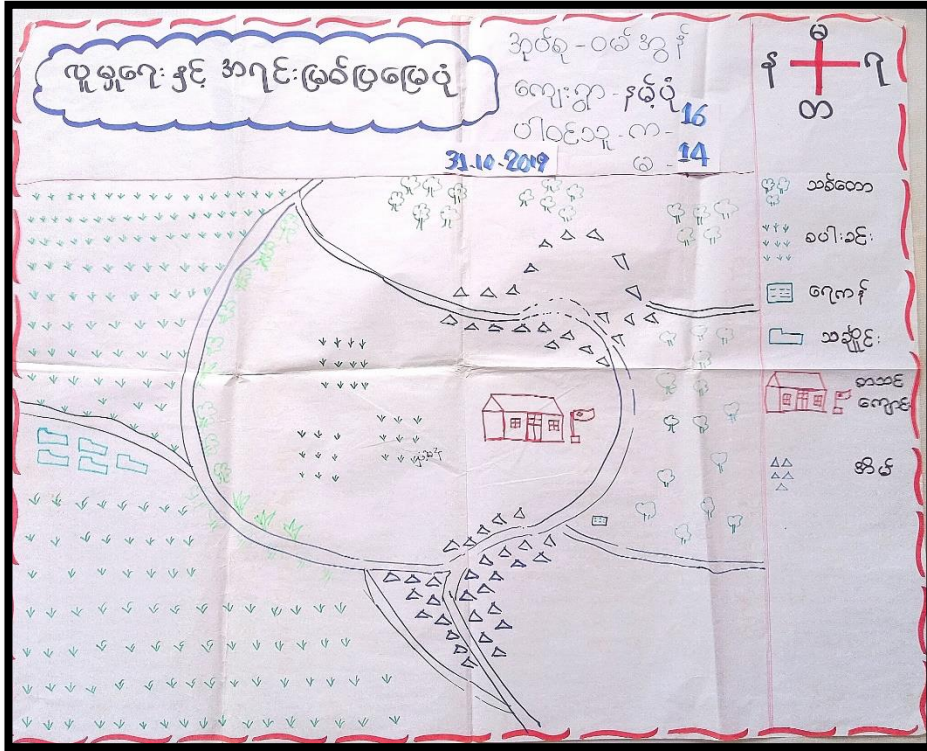 လူမှုရေးနှင့် အရင်းမြစ်ပြမြေပုံ
အုပ်စု - ဝမ်အွန်
ကျေးရွာ - နမ့်ပုံ
ပါဝင်သူ - က - 16
မ - 14
31-10-2019
မ
န ရ
တ
သစ်တော
စပါးခင်း
ရေကန်
သချႋုင်း
စာသင်
ကျောင်း
အိမ်